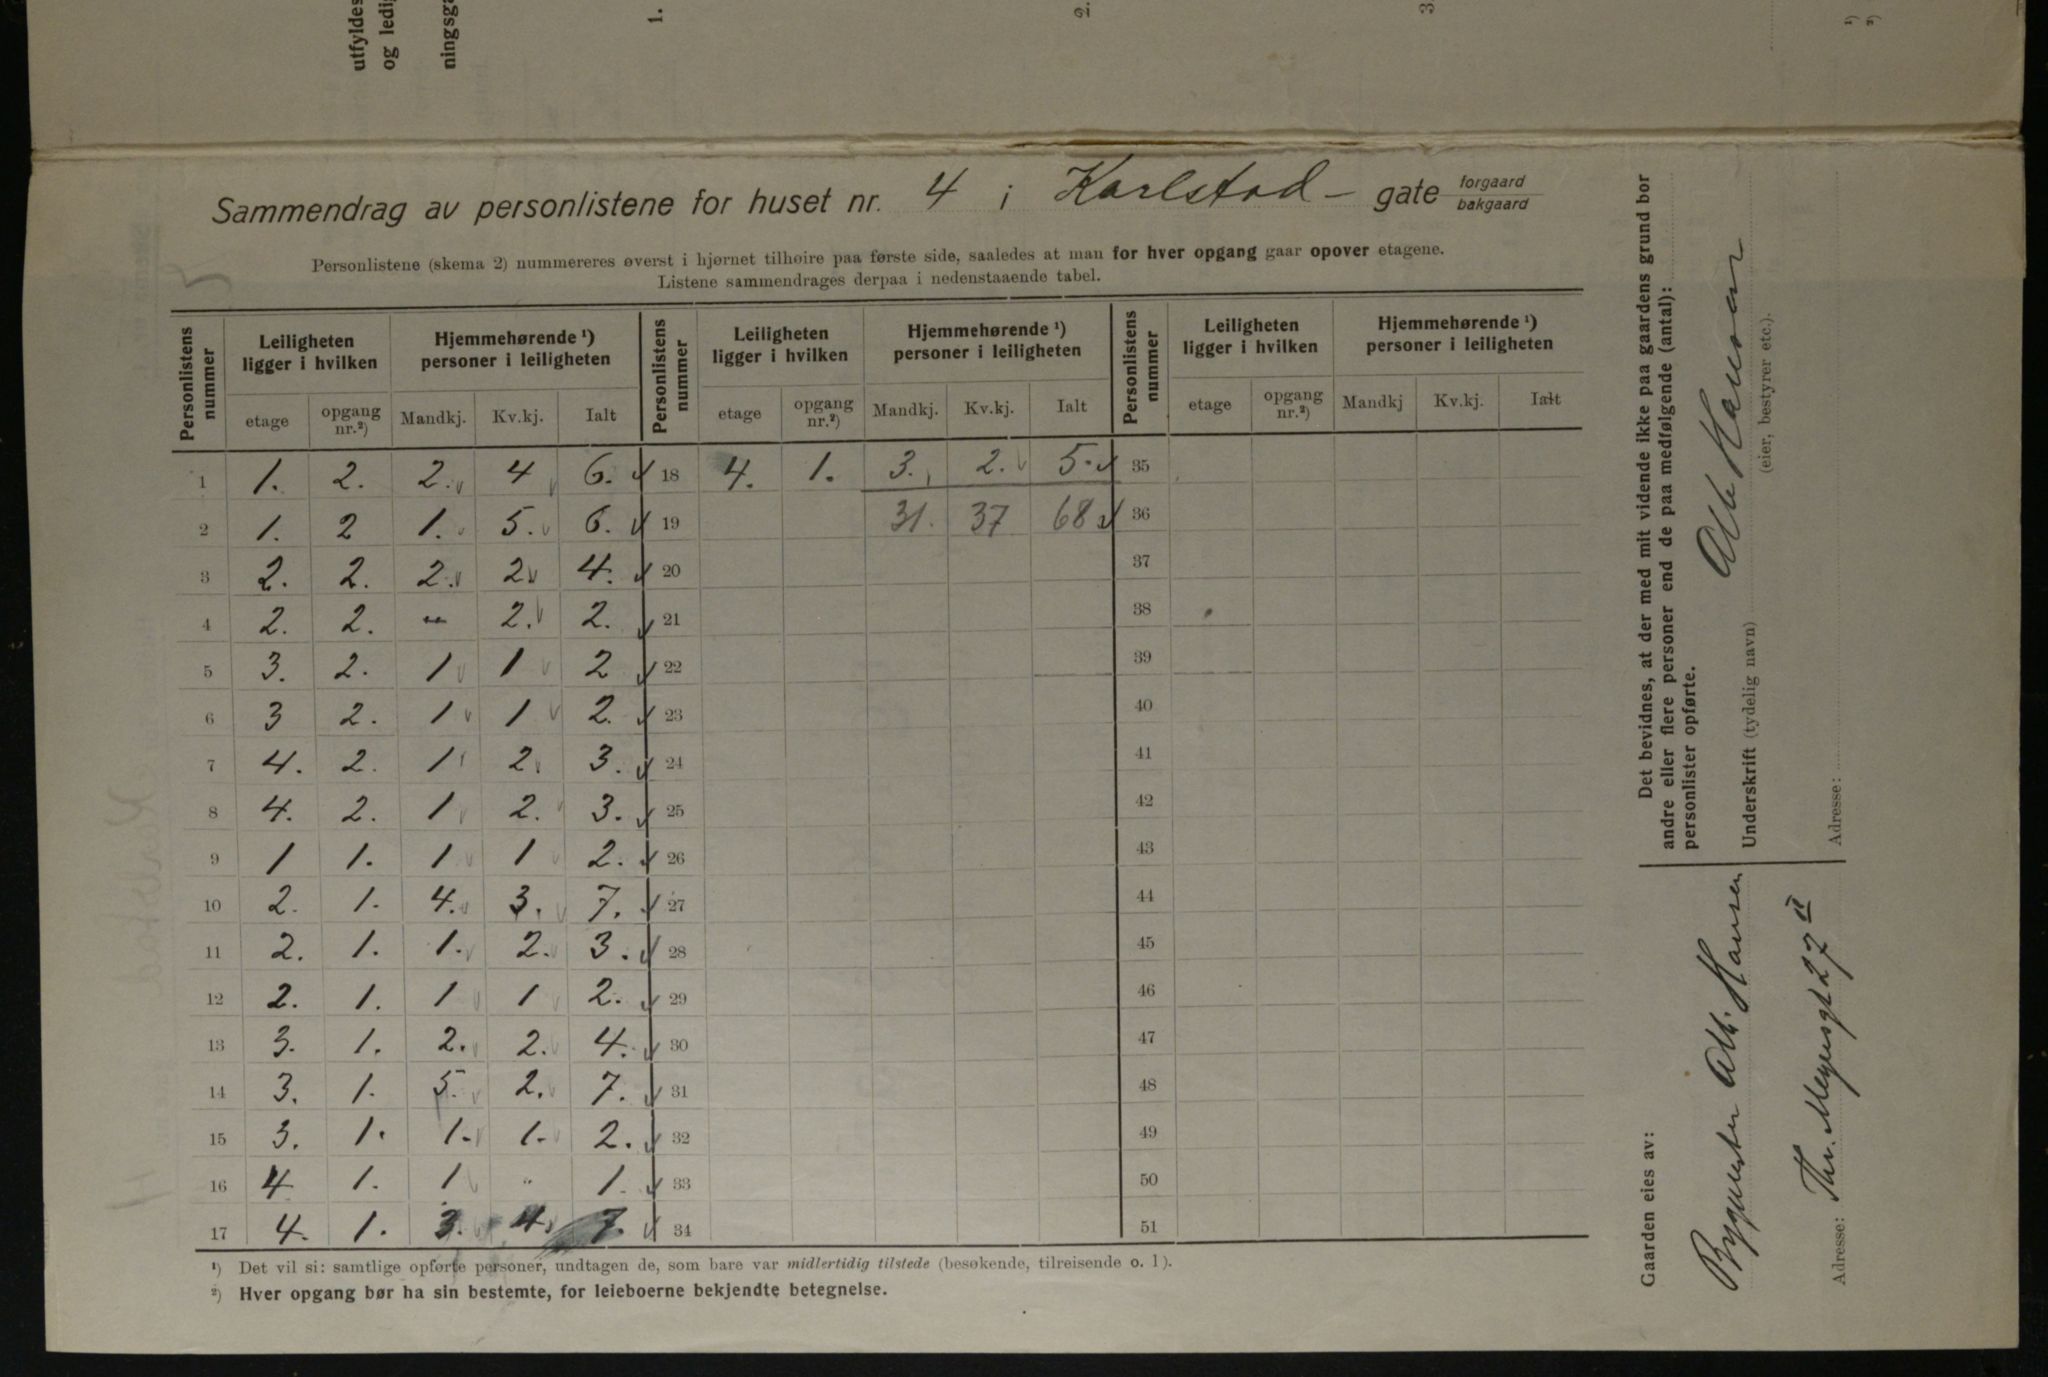 utfyldes
og ledig
ningsga
1.
2.
3.
¹)
²)
Sammendrag av personlistene for huset nr. 4 i Karlstad- gate forgaard
bakgaard
Personlistene (skema 2) nummereres øverst i hjørnet tilhøire paa første side, saaledes at man for hver opgang gaar opover etagene.
Listene sammendrages derpaa i nedenstaaende tabel.
Personlistens nummer | Leiligheten ligger i hvilken | Hjemmehørende ¹) personer i leiligheten | Personlistens nummer | Leiligheten ligger i hvilken | Hjemmehørende ¹) personer i leiligheten | Personlistens nummer | Leiligheten ligger i hvilken | Hjemmehørende ¹) personer i leiligheten
etage | opgang nr.²) | Mandkj. | Kv.kj. | Ialt | etage | opgang nr.²) | Mandkj. | Kv.kj. | Ialt | etage | opgang nr.²) | Mandkj | Kv.kj. | Ialt
1 1. 2. 2. 4 6. 18 4. 1. 3. 2. 5. 35
2 1. 2 1. 5. 6. 19 31. 37 68 36
3 2. 2. 2. 2. 4. 20 37
4 2. 2. - 2. 2. 21 38
5 3. 2. 1 1 2 22 39
6 3 2. 1 1 2. 23 40
7 4. 2. 1 2. 3. 24 41
8 4. 2. 1 2. 3. 25 42
9 1 1. 1 1 2. 26 43
10 2. 1. 4. 3. 7. 27 44
11 2. 1. 1. 2. 3. 28 45
12 2. 1. 1 1 2. 29 46
13 3. 1. 2. 2. 4. 30 47
14 3. 1. 5. 2. 7. 31 48
15 3. 1. 1. 1. 2. 32 49
16 4 1. 1 " 1. 33 50
17 4. 1. 3. 4. 7. 34 51
¹) Det vil si: samtlige opførte personer, undtagen de, som bare var midlertidig tilstede (besøkende, tilreisende o. l).
²) Hver opgang bør ha sin bestemte, for leieboerne bekjendte betegnelse.
Det bevidnes, at der med mit vidende ikke paa gaardens grund bor
andre eller flere personer end de paa medfølgende (antal):
personlister opførte.
Alb Hansen
Underskrift (tydelig navn)
(eier, bestyrer etc.).
Adresse:
Gaarden eies av:
Byggmester Alb. Hansen
Adresse: Thv. Meyersgt 27 II